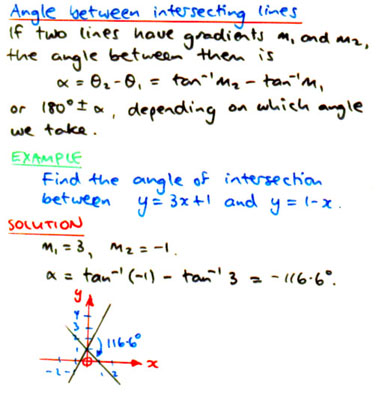 Angle between intersecting lines
If two lines have gradients m₁ and m₂,
the angle between them is
α = θ₂ - θ₁ = tan⁻¹ m₂ - tan⁻¹ m₁
or 180° ± α, depending on which angle
we take.
EXAMPLE
Find the angle of intersection
between y = 3x + 1 and y = 1 - x.
SOLUTION
m₁ = 3, m₂ = -1.
α = tan⁻¹ (-1) - tan⁻¹ 3 = -116.6°.
y
4
3
2
1
116.6°
x
-2 -1 1 2